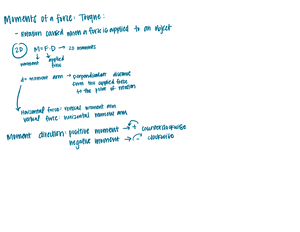 Moments of a force: Torque:
- Rotation caused when a force is applied to an object
2D M = F·D → 2D moments
moment applied force
d = moment arm → perpendicular distance
from the applied force
to the point of rotation
Horizontal force: vertical moment arm
vertical force: horizontal moment arm
Moment direction: positive moment → + counterclockwise
negative moment → - clockwise